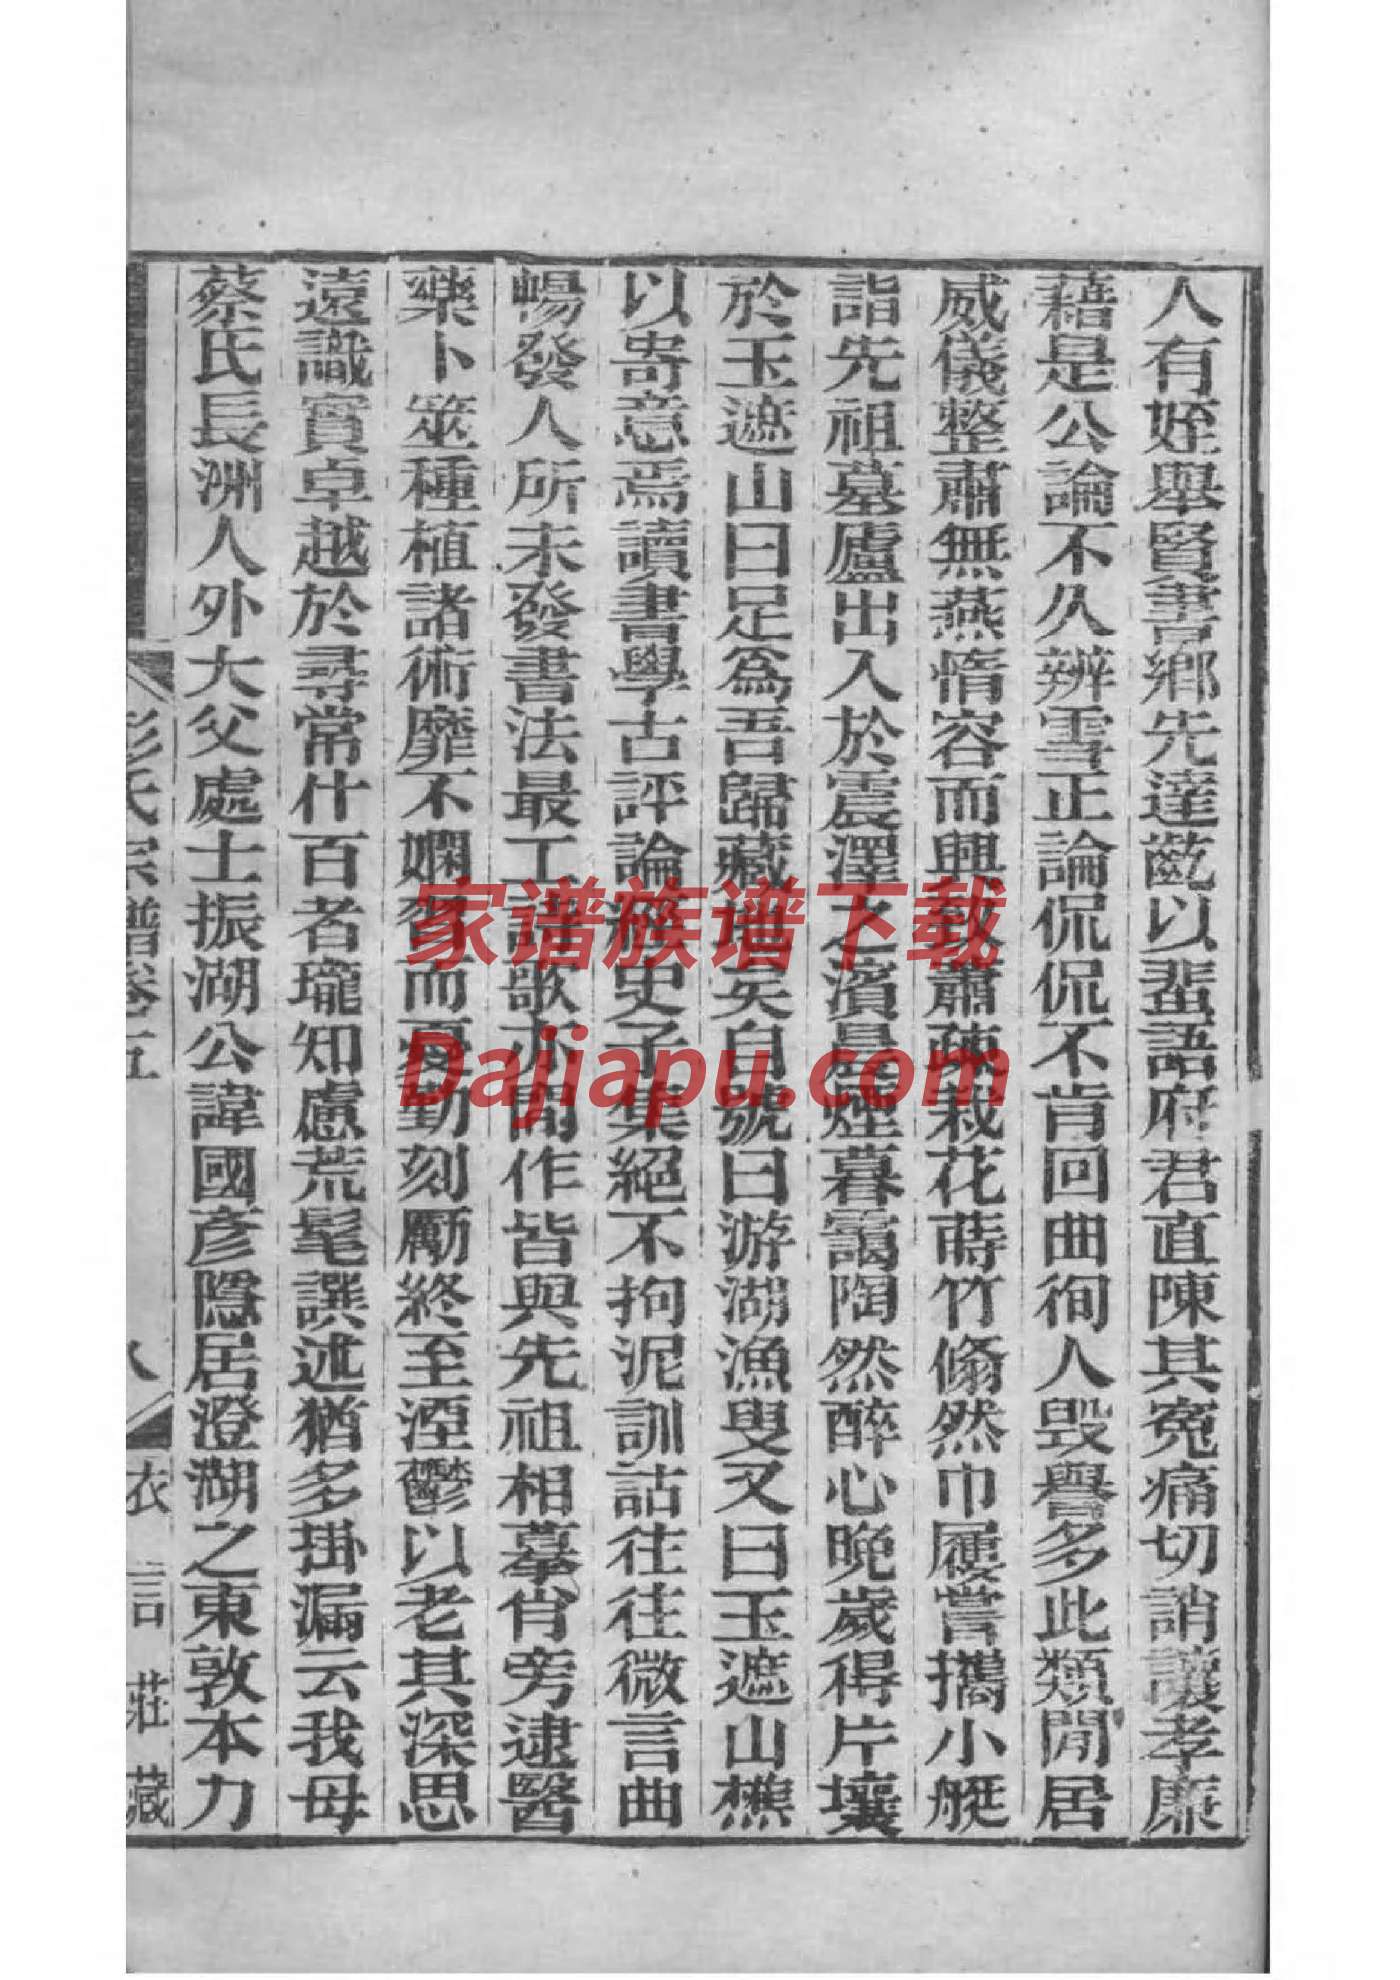 人有姪舉賢書鄉先達齮以蜚語府君直陳其冤痛切誚讓孝廉
藉是公論不久辨雪正論侃侃不肯回曲徇人毀譽多此類閒居
威儀整肅無燕惰容而興致蕭疎栽花蒔竹翛然巾履嘗攜小艇
詣先祖墓廬出入於震澤之濱晨煙暮靄陶然醉心晚歲得片壤
於玉遮山曰足為吾歸藏地矣自號曰游湖漁叟又曰玉遮山樵
以寄意焉讀書學古評論經史子集絕不拘泥訓詁往往微言曲
暢發人所未發書法最工詩歌亦間作皆與先祖相摹肖旁逮醫
藥卜筮種植諸術靡不嫻習而憂勤刻勵終至湮鬱以老其深思
遠識實卓越於尋常什百者瓏知慮荒髦譔述猶多掛漏云我母
蔡氏長洲人外大父處士振湖公諱國彥隱居澄湖之東敦本力
彭氏宗譜卷五
八
衣言莊藏
家谱族谱下载
Dajiapu.com